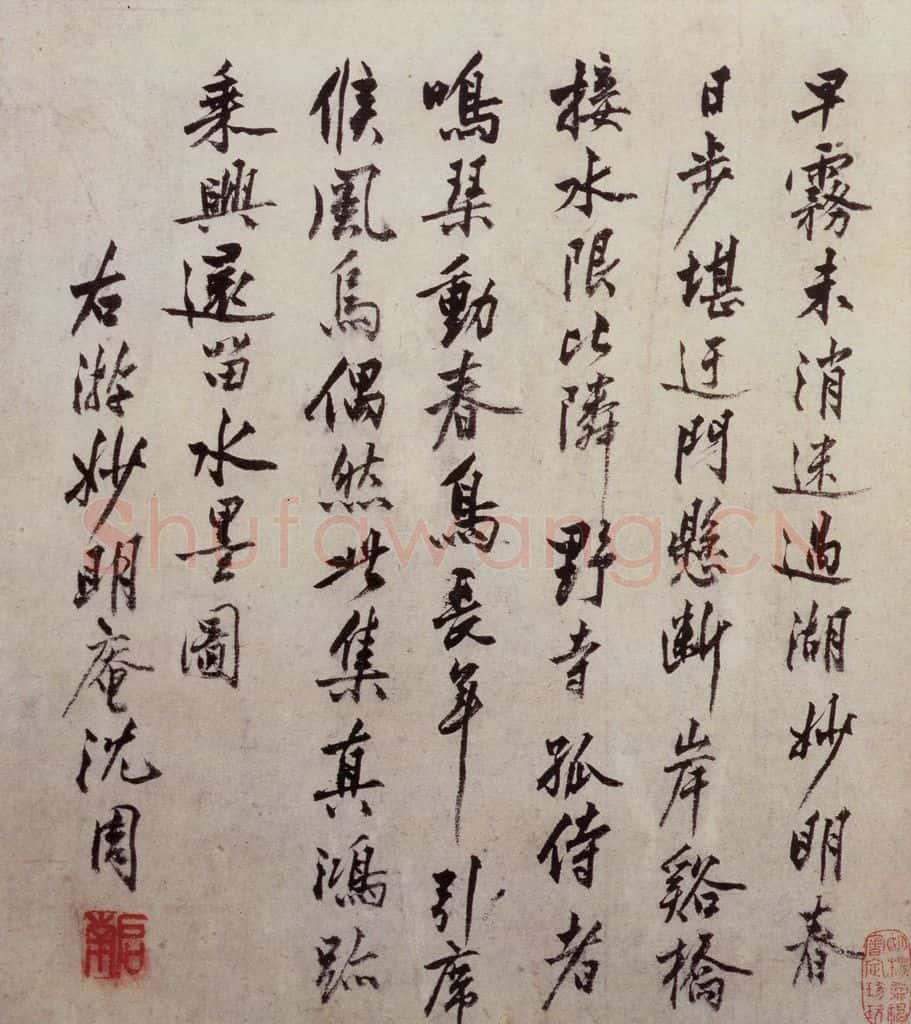 早霧未消迷過湖妙明春
日步堪迂門懸斷岸谿橋
接水限比隣野寺孤侍者
鳴琴動春鳥長年引席
候風烏偶然此集真鴻跡
乘興還留水墨圖
右游妙明庵沈周
Shufawang.CN